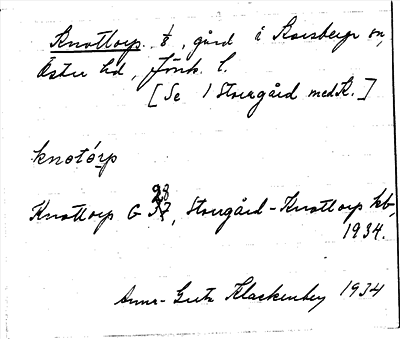 Knottorp, gård i Korsberga sn,
Östra hd, Jönk. l.
[Se 1 Storgård med K.]
knotórp
Knottorp G 28, Storgård-Knottorp kb,
1934.
Anna-Greta Klackenberg 1934